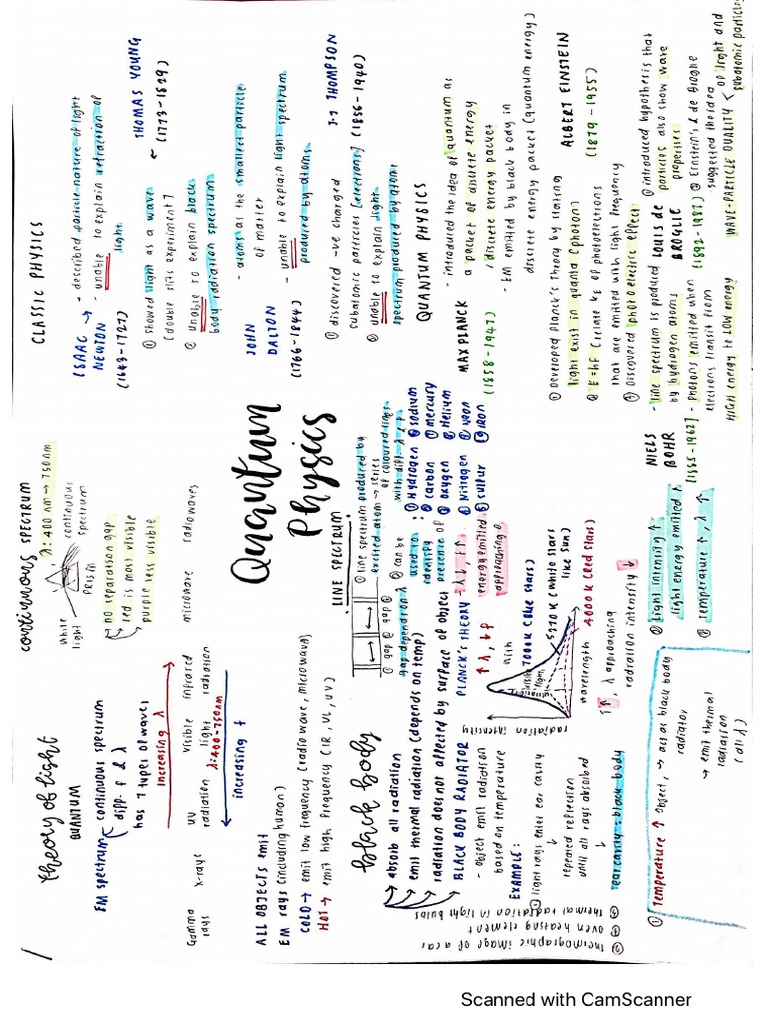 Theory of light
QUANTUM
EM spectrum
continuous spectrum
diff. f & λ
has 7 types of waves
increasing λ
Gamma rays
x-rays
UV radiation
visible light
λ: 400-750nm
infrared radiation
microwave
radiowaves
increasing f
ALL OBJECTS emit
EM rays (including human)
COLD → emit low frequency (radio wave, microwave)
HOT → emit high frequency (IR, VL, UV)
continuous spectrum
λ: 400 nm → 750nm
white light
continuous spectrum
no separation gap
red is most visible
purple less visible
CLASSIC PHYSICS
ISAAC NEWTON
(1643-1727)
- described particle nature of light
- unable to explain refraction of
light
THOMAS YOUNG
(1773-1829)
① showed light as a wave
(double slit experiment)
② unable to explain black
body radiation spectrum
JOHN DALTON
(1766-1844)
- atom as the smallest particle
of matter
- unable to explain light spectrum
produced by atom
J-J THOMPSON
(1856-1940)
① discovered -ve charged
subatomic particles [electrons]
② unable to explain light
spectrum produced by atoms
Quantum
Physics
LINE SPECTRUM
① gap ② gap ③
gap depend on λ
① line spectrum produced by
excited atom → series
of coloured lines
with diff. λ & f
② can be
used to
identify
presence of
:
① Hydrogen ⑥ sodium
② carbon ⑦ mercury
③ oxygen ⑧ Helium
④ Nitrogen ⑨ neon
⑤ sulfur ⑩ iron
black body
absorb all radiation
emit thermal radiation (depends on temp)
radiation does not affected by surface of object
BLACK BODY RADIATOR
- object emit radiation
based on temperature
EXAMPLE:
① light rays enter ear cavity
↓
repeated reflection
until all rays absorbed
↓
ear cavity = black body
② thermographic image of a car
③ oven heating element
④ thermal radiation in light bulbs
PLANCK'S THEORY - λ↓, f↑
↑λ, ↓f
with
energy emitted
approaching 0
radiation intensity
7000 K (blue stars)
5270 K (white stars
like sun)
4000 K (red stars)
wavelength
↑↑, λ approaching
radiation intensity ↓
① Temperature ↑ object, → act as black body
radiator
→ emit thermal
radiation
(all λ)
② light intensity ↑
light energy emitted ↑
③ temperature ↑, λ ↑
QUANTUM PHYSICS
MAX PLANCK
(1858-1947)
- introduced the idea of quantum as
a packet of discrete energy
/ discrete energy packet
- EM emitted by black body in
discrete energy packet (quantum energy)
ALBERT EINSTEIN
(1879-1955)
① Developed Planck's theory by stating
light exist in quanta (photon)
② E=hf (relate KE of photoelectrons
that are emitted with light frequency
③ Discovered photoelectric effect
NIELS BOHR
[1885-1962]
- line spectrum is produced
by hydrogen atoms
- Photons emitted when
electrons transit from
HIGH energy to LOW energy
LOUIS de BROGLIE
(1892-1987)
① introduced hypothesis that
particles also show wave
properties
② Einstein's & de Broglie
suggested the idea
WAVE-PARTICLE DUALITY
of light and
subatomic particles
Scanned with CamScanner